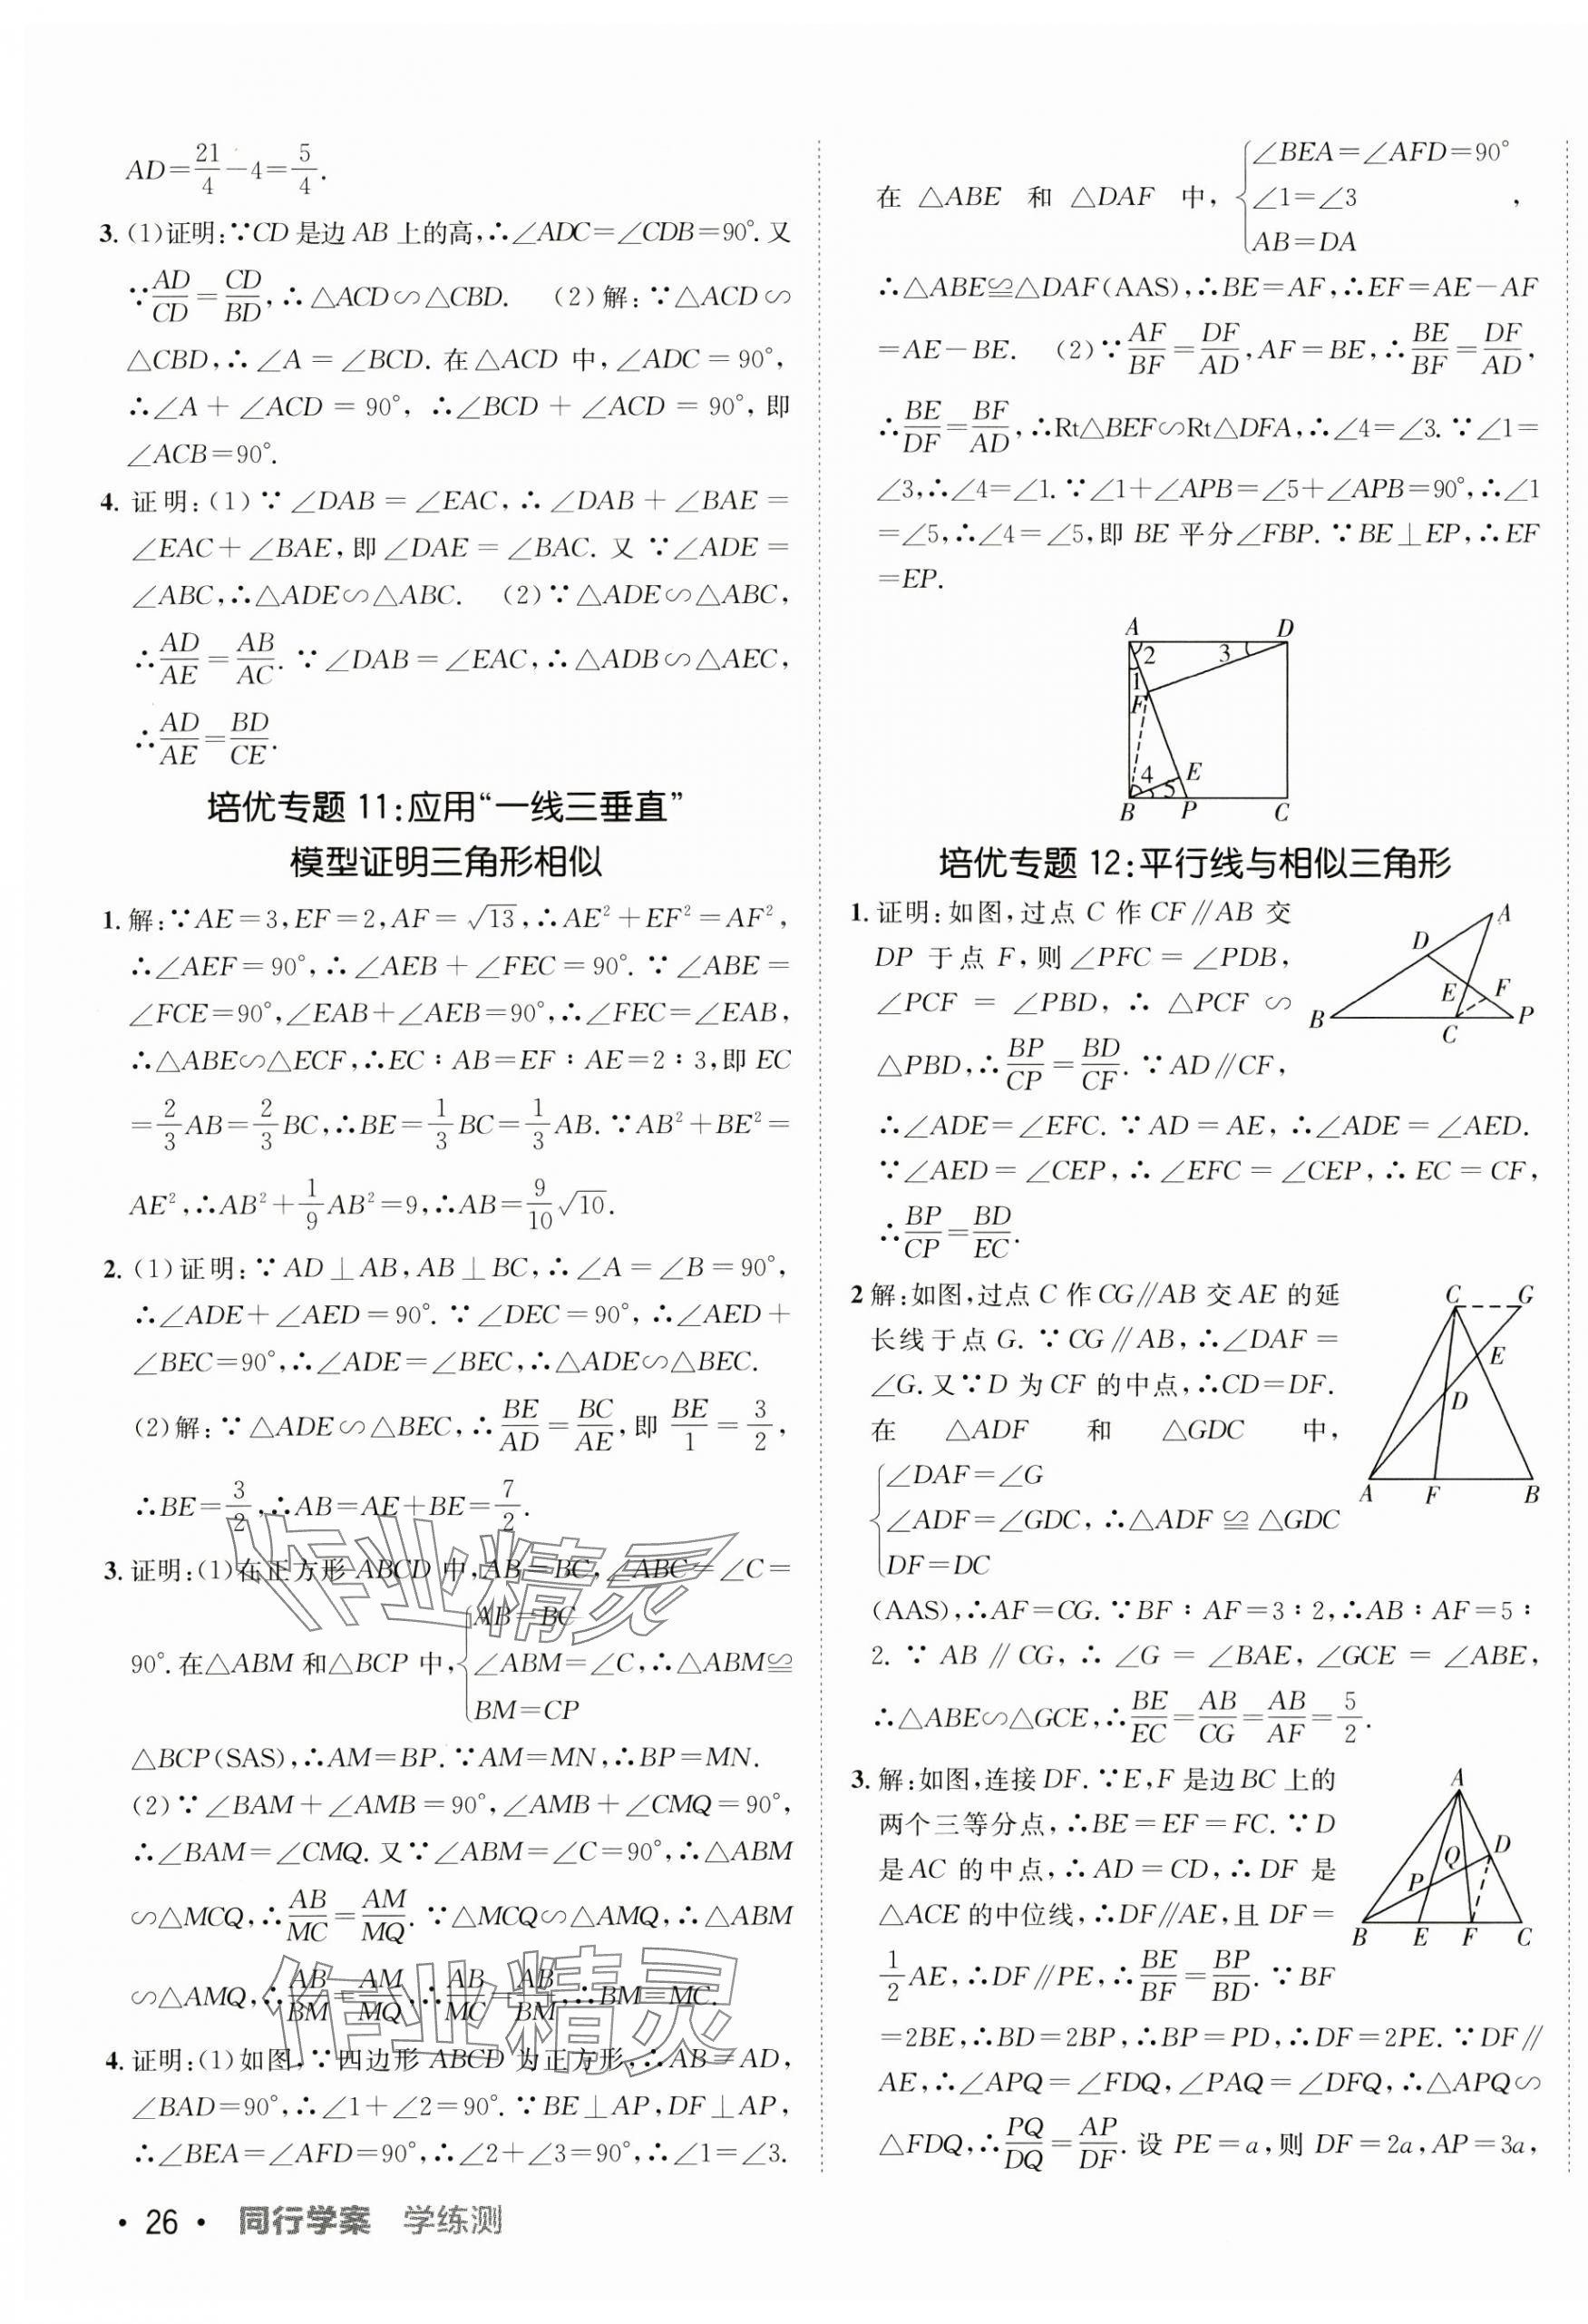 AD=21/4-4=5/4.
3. (1)证明:∵CD 是边 AB 上的高,∴∠ADC=∠CDB=90°.又
∵AD/CD=CD/BD,∴△ACD∽△CBD. (2)解:∵△ACD∽
△CBD,∴∠A=∠BCD.在△ACD 中,∠ADC=90°,
∴∠A+∠ACD=90°,∴∠BCD+∠ACD=90°,即
∠ACB=90°.
4. 证明:(1)∵∠DAB=∠EAC,∴∠DAB+∠BAE=
∠EAC+∠BAE,即∠DAE=∠BAC.又∵∠ADE=
∠ABC,∴△ADE∽△ABC. (2)∵△ADE∽△ABC,
∴AD/AE=AB/AC.∵∠DAB=∠EAC,∴△ADB∽△AEC,
∴AD/AE=BD/CE.
培优专题 11:应用“一线三垂直”
模型证明三角形相似
1. 解:∵AE=3,EF=2,AF=√13,∴AE²+EF²=AF²,
∴∠AEF=90°,∴∠AEB+∠FEC=90°.∵∠ABE=
∠FCE=90°,∠EAB+∠AEB=90°,∴∠FEC=∠EAB,
∴△ABE∽△ECF,∴EC∶AB=EF∶AE=2∶3,即 EC
=2/3AB=2/3BC,∴BE=1/3BC=1/3AB.∵AB²+BE²=
AE²,∴AB²+1/9AB²=9,∴AB=9/10√10.
2. (1)证明:∵AD⊥AB,AB⊥BC,∴∠A=∠B=90°,
∴∠ADE+∠AED=90°.∵∠DEC=90°,∴∠AED+
∠BEC=90°,∴∠ADE=∠BEC,∴△ADE∽△BEC.
(2)解:∵△ADE∽△BEC,∴BE/AD=BC/AE,即BE/1=3/2,
∴BE=3/2,∴AB=AE+BE=7/2.
3. 证明:(1)在正方形 ABCD 中,AB=BC,∠ABC=∠C=
90°.在△ABM 和△BCP 中,{AB=BC
∠ABM=∠C,∴△ABM≌
BM=CP
△BCP(SAS),∴AM=BP.∵AM=MN,∴BP=MN.
(2)∵∠BAM+∠AMB=90°,∠AMB+∠CMQ=90°,
∴∠BAM=∠CMQ.又∵∠ABM=∠C=90°,∴△ABM
∽△MCQ,∴AB/MC=AM/MQ.∵△MCQ∽△AMQ,∴△ABM
∽△AMQ,∴AB/BM=AM/MQ,∴AB/MC=AB/BM,∴BM=MC.
4. 证明:(1)如图,∵四边形 ABCD 为正方形,∴AB=AD,
∠BAD=90°,∴∠1+∠2=90°.∵BE⊥AP,DF⊥AP,
∴∠BEA=∠AFD=90°,∴∠2+∠3=90°,∴∠1=∠3.
在 △ABE 和 △DAF 中,{∠BEA=∠AFD=90°
∠1=∠3,
AB=DA
∴△ABE≌△DAF(AAS),∴BE=AF,∴EF=AE-AF
=AE-BE. (2)∵AF/BF=DF/AD,AF=BE,∴BE/BF=DF/AD,
∴BE/DF=BF/AD,∴Rt△BEF∽Rt△DFA,∴∠4=∠3.∵∠1=
∠3,∴∠4=∠1.∵∠1+∠APB=∠5+∠APB=90°,∴∠1
=∠5,∴∠4=∠5,即 BE 平分∠FBP.∵BE⊥EP,∴EF
=EP.
A D
2 3
1
F
4 E
5
B P C
培优专题 12:平行线与相似三角形
1. 证明:如图,过点 C 作 CF∥AB 交
DP 于点 F,则∠PFC=∠PDB,
∠PCF=∠PBD,∴△PCF∽
△PBD,∴BP/CP=BD/CF.∵AD∥CF,
A
D
E F
B C P
∴∠ADE=∠EFC.∵AD=AE,∴∠ADE=∠AED.
∵∠AED=∠CEP,∴∠EFC=∠CEP,∴EC=CF,
∴BP/CP=BD/EC.
2 解:如图,过点 C 作 CG∥AB 交 AE 的延
长线于点 G.∵CG∥AB,∴∠DAF=
∠G.又∵D 为 CF 的中点,∴CD=DF.
在 △ADF 和 △GDC 中,
{∠DAF=∠G
∠ADF=∠GDC,∴△ADF≌△GDC
DF=DC
C G
E
D
A F B
(AAS),∴AF=CG.∵BF∶AF=3∶2,∴AB∶AF=5∶
2.∵AB∥CG,∴∠G=∠BAE,∠GCE=∠ABE,
∴△ABE∽△GCE,∴BE/EC=AB/CG=AB/AF=5/2.
3. 解:如图,连接 DF.∵E,F 是边 BC 上的
两个三等分点,∴BE=EF=FC.∵D
是 AC 的中点,∴AD=CD,∴DF 是
△ACE 的中位线,∴DF∥AE,且 DF=
1/2AE,∴DF∥PE,∴BE/BF=BP/BD.∵BF
A
Q D
P
B E F C
=2BE,∴BD=2BP,∴BP=PD,∴DF=2PE.∵DF∥
AE,∴∠APQ=∠FDQ,∠PAQ=∠DFQ,∴△APQ∽
△FDQ,∴PQ/DQ=AP/DF.设 PE=a,则 DF=2a,AP=3a,
· 26 · 同行学案 学练测
作业精灵
作业精灵